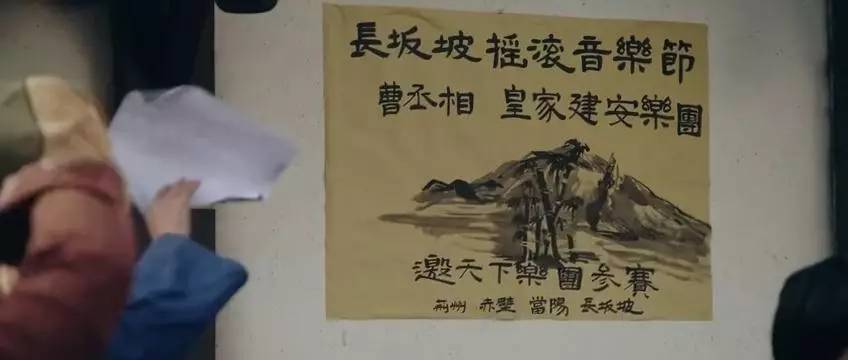 長坂坡摇滚音樂節
曹丞相 皇家建安樂團
邀天下樂團參賽
荊州 赤壁 當陽 長坂坡